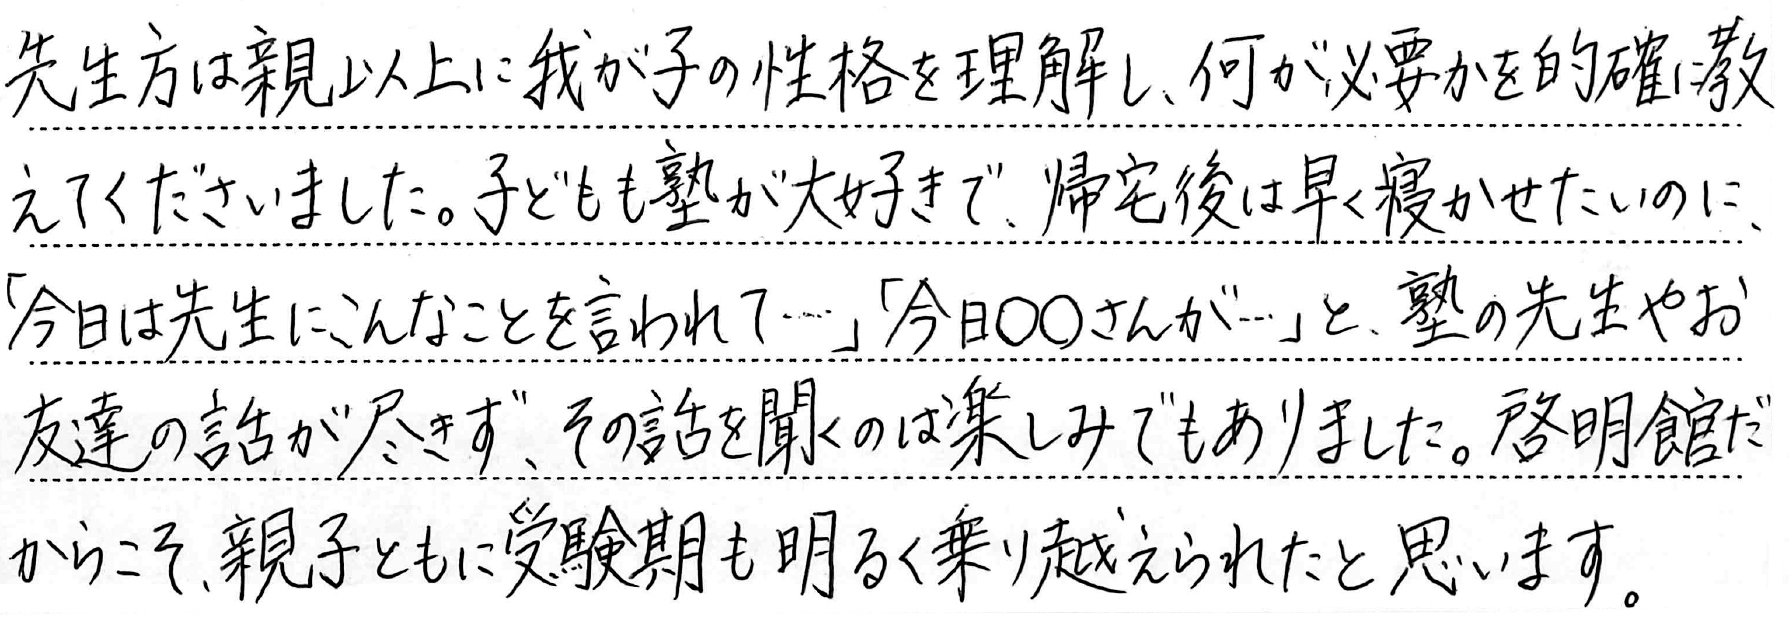 先生方は親以上に我が子の性格を理解し、何が必要かを的確に教
えてくださいました。子どもも塾が大好きで、帰宅後は早く寝かせたいのに、
「今日は先生にこんなことを言われて…」「今日〇〇さんが…」と、塾の先生やお
友達の話が尽きず、その話を聞くのは楽しみでもありました。啓明館だ
からこそ、親子ともに受験期も明るく乗り越えられたと思います。